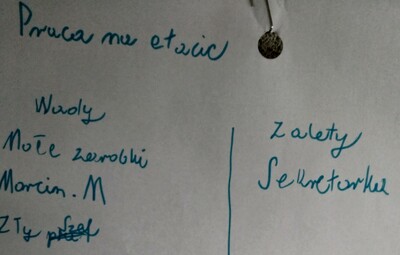 Praca na etacie
Wady
Małe zarobki
Marcin. M
Zły szef
Zalety
Sekretarka